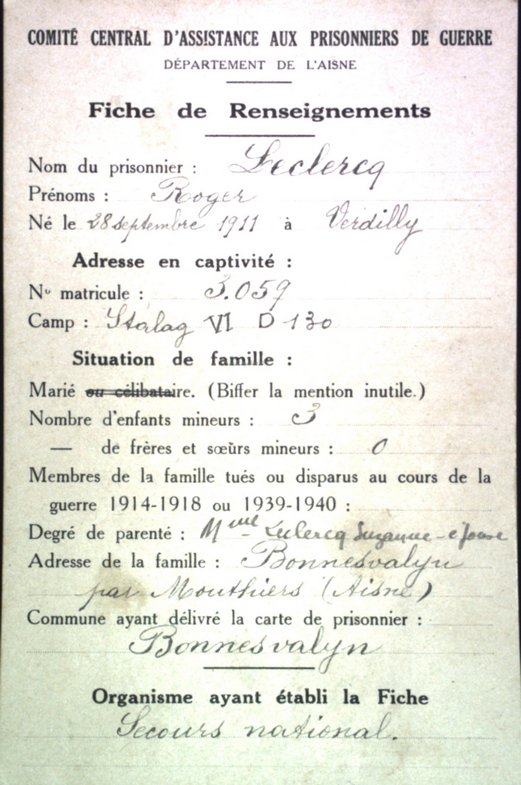 COMITÉ CENTRAL D'ASSISTANCE AUX PRISONNIERS DE GUERRE
DÉPARTEMENT DE L'AISNE
Fiche de Renseignements
Nom du prisonnier : Leclercq
Prénoms : Roger
Né le 28 septembre 1911 à Verdilly
Adresse en captivité :
No matricule : 3.059
Camp : Stalag VI D 130
Situation de famille :
Marié ou célibataire. (Biffer la mention inutile.)
Nombre d'enfants mineurs : 3
— de frères et sœurs mineurs : 0
Membres de la famille tués ou disparus au cours de la
guerre 1914-1918 ou 1939-1940 :
Degré de parenté : Mme Leclercq Suzanne - épouse
Adresse de la famille : Bonnesvalyn
par Mouthiers (Aisne)
Commune ayant délivré la carte de prisonnier :
Bonnesvalyn
Organisme ayant établi la Fiche
Secours national.